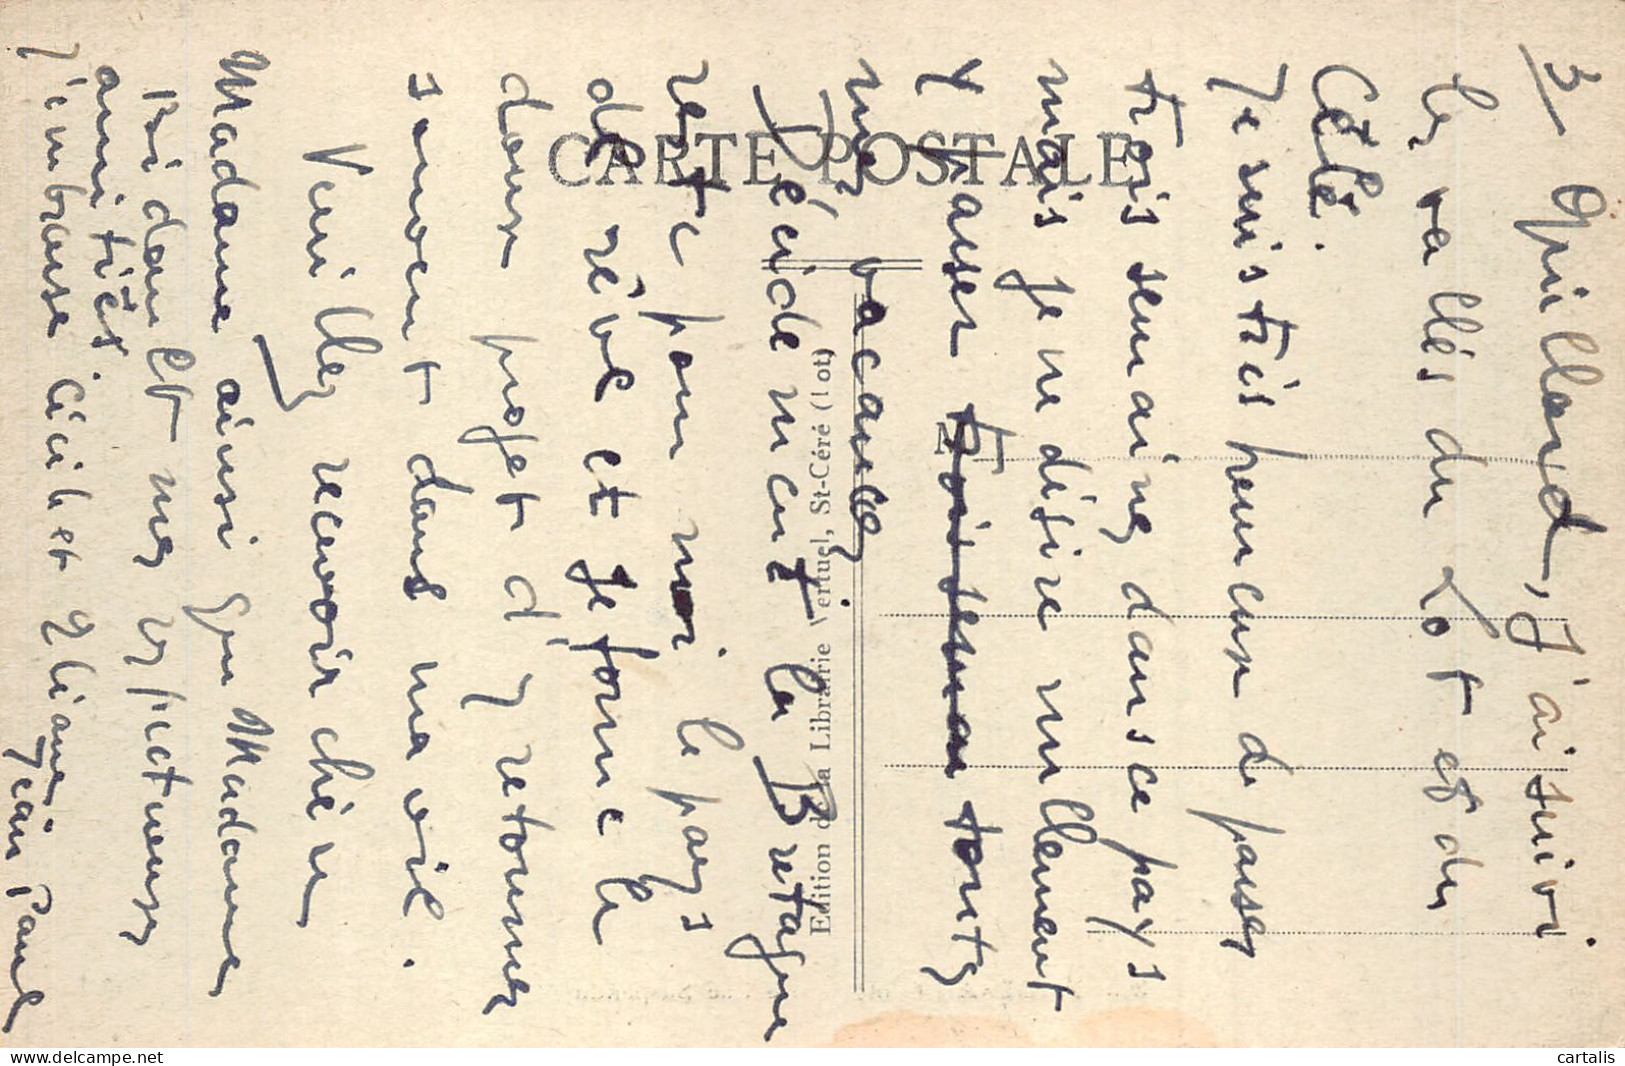 3/ Gouillard, J'ai suivi
les vallés du Lot et du
Célé.
Je suis très heureux de passer
trois semaines dans ce pays
mais je ne désire nullement
y passer trois seman toutes
mes vacances.
Décidement la Bretagne
reste pour moi le pays
de rêve et je forme le
doux projet d'y retourner
souvent dans ma vie.
Veuillez recevoir chère
Madame ainsi que Madame
Bidault mes respectueuses
amitiés.
J'embrasse Cécile et Eliane
Jean Paul
CARTE POSTALE
Edition de la Librairie Vertuel, St-Céré (Lot)
cartalis.com